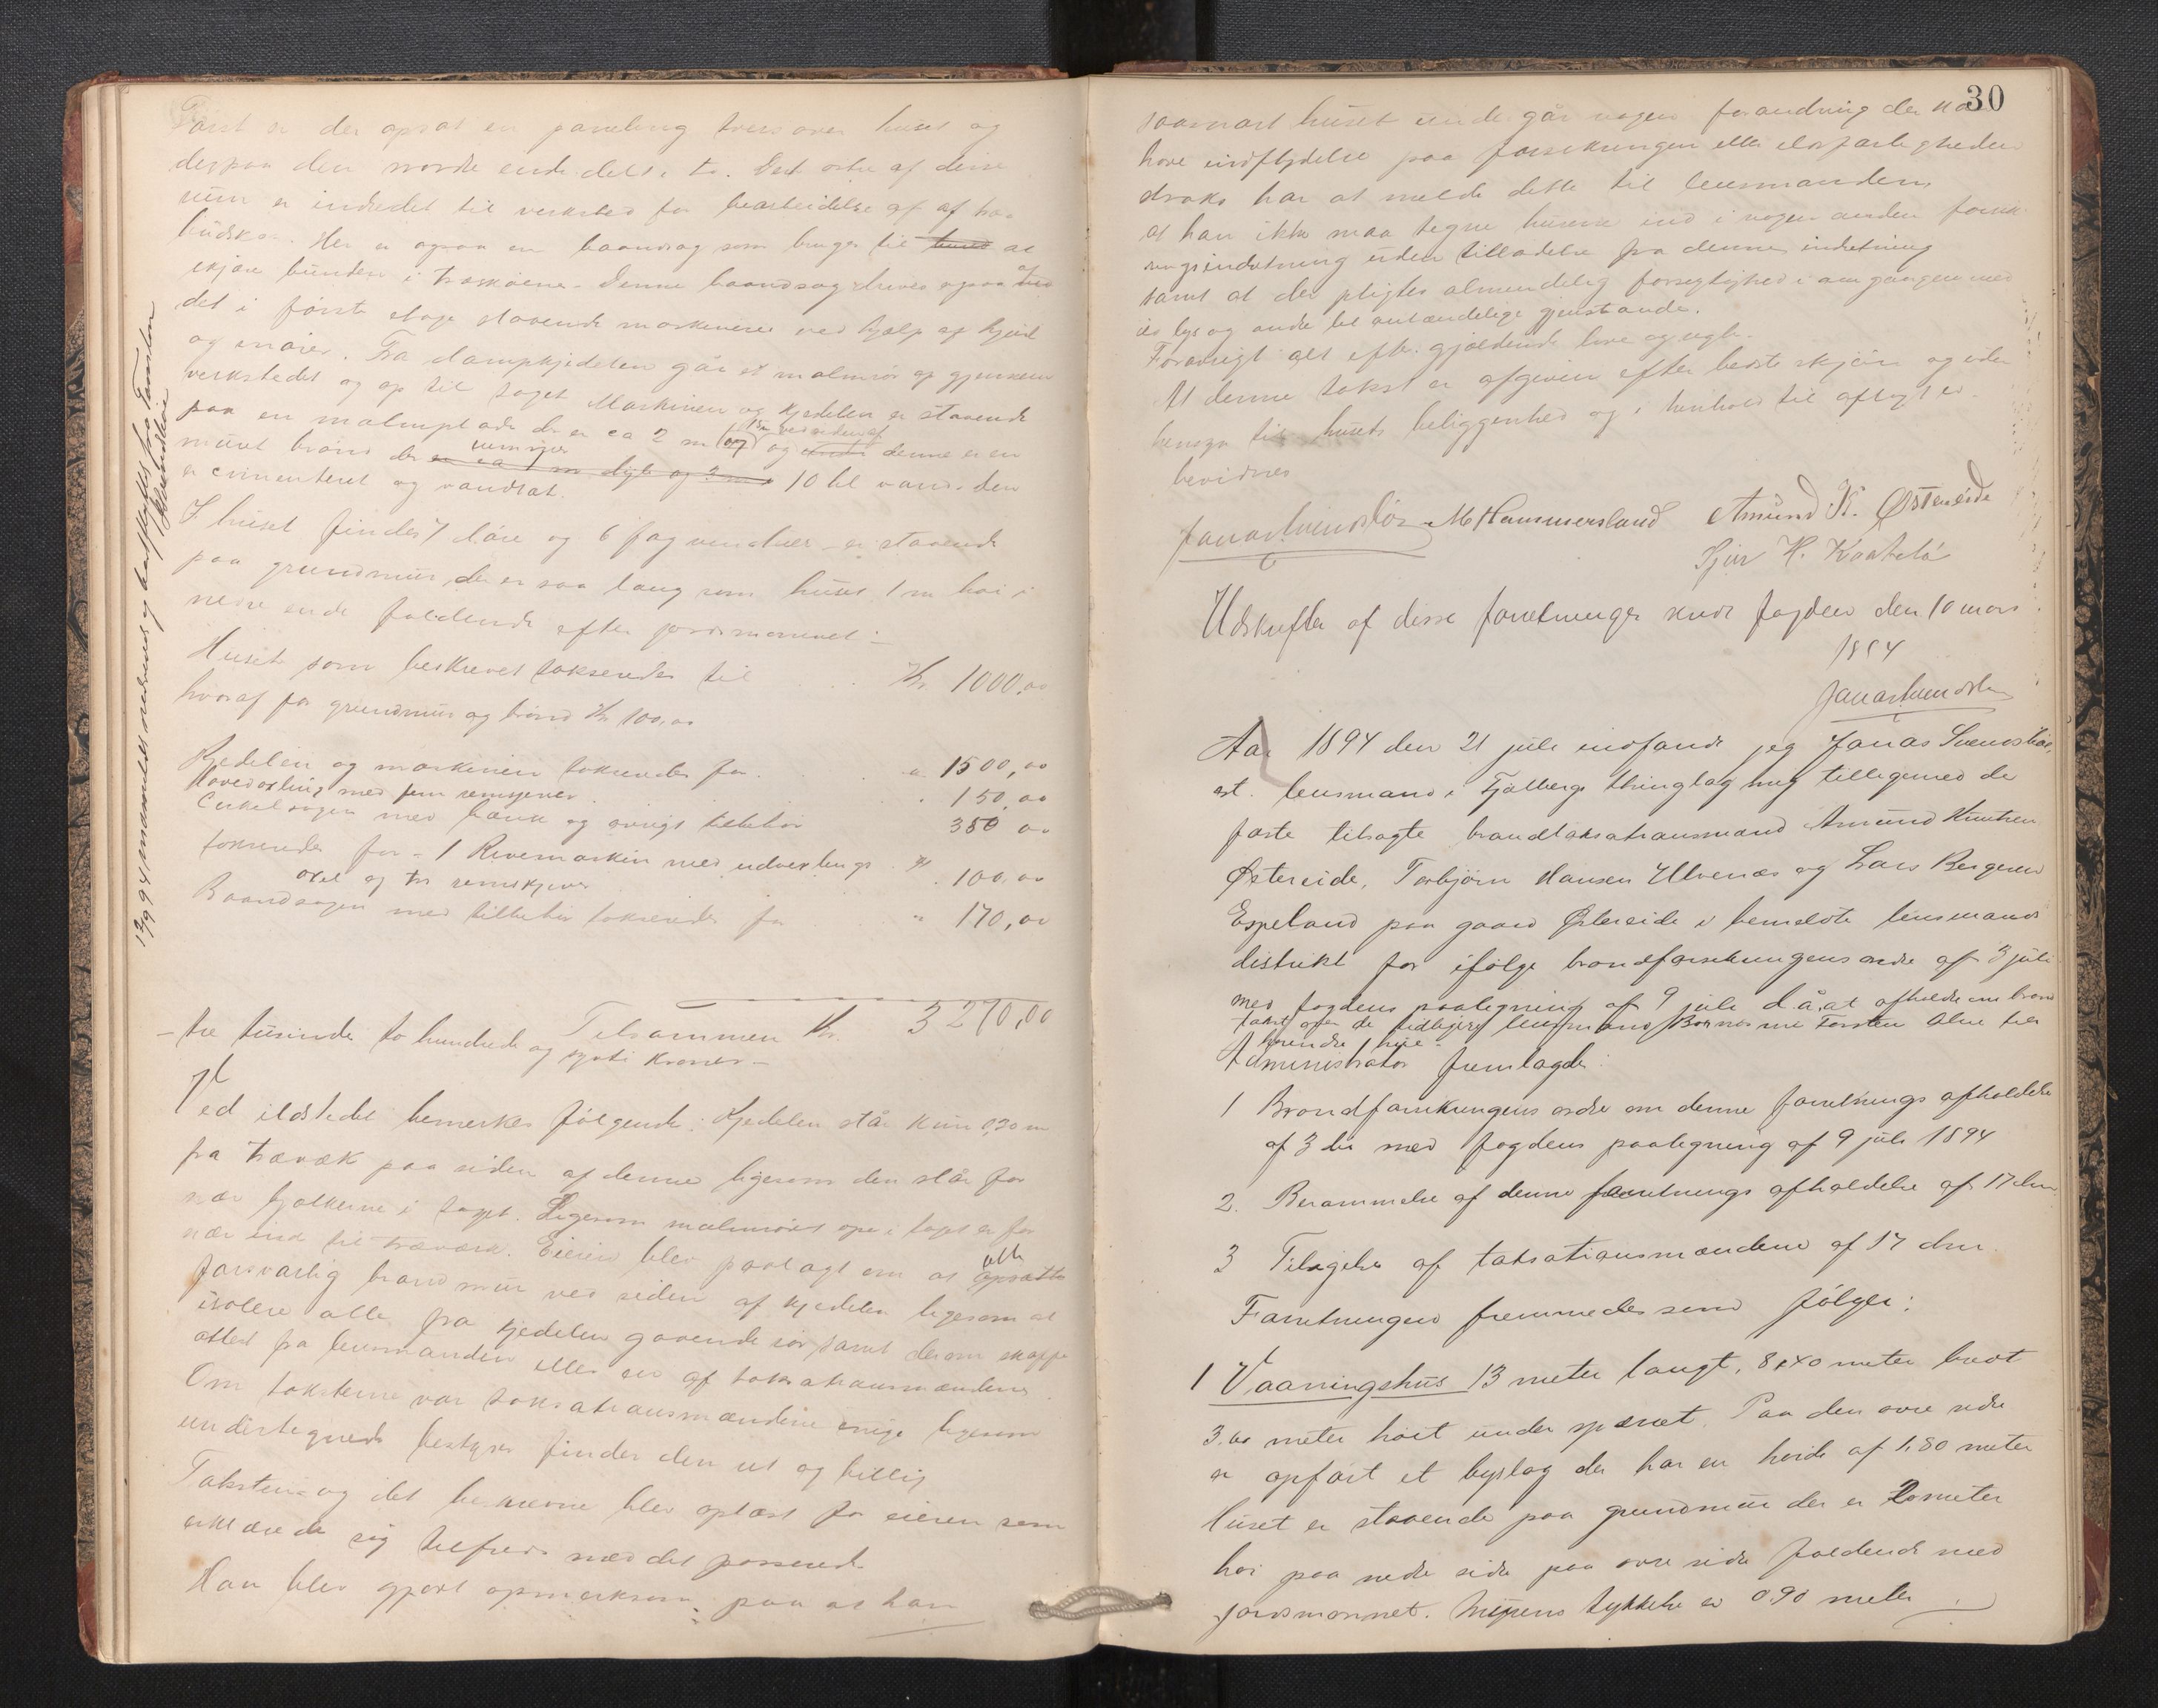 Først er der opsat en paneling tvers over huset og
derpaa den nordre ende delt i to. Det østre af disse
rum er indredet til verksted for bearbeidelse af af træ-
budsker. Her er ogsaa en baandsag som bruges til at
skjære bunden i træskoene. Denne baandsag drives ogsaa
det i første etage staaende maskineri ved hjelp af hjul
og snorer. Fra dampkjedelen går et malmrør op gjennem
verkstedet og op til taget. Maskinen og kjedelen er staaende
paa en malmplade der er ca 2 m og denne er en
muret brønd der rummer 10 hl vand. den
er cementeret og vandtæt.
I huset findes 7 døre og 6 fag vinduer er staaende
paa grundmur, der er saa lang som huset 1 m høi i
nedre ende faldende efter jordsmonnet
Huset som beskrevet takseredes til Kr 1000,00
hvoraf for grundmur og brønd Kr 100,00
Kjedelen og maskinen takseredes for " 1500,00
Hovedaxling med fem remskjever " 150,00
Cirkelsagen med bænk og øvrigt tilbehør 350 00
takseredes for - 1 Rivemaskin med udvexlings
axel og tre remskjever " 100,00
Baandsagen med tilbehør takseredes for " 170,00
Tilsammen Kr. 3270,00
- tre tusinde to hundrede og sytti Kroner -
Ved ildstedet bemerkes følgende: Kjedelen står kun 0,30 m
fra trævæk paa siden af denne ligesom den står for
nær bjælkerne i taget. Ligesom malmrøret oppe i taget er for
nær ind til træværk. Eieren blev paalagt om at opsætte
forsvarlig brandmur ved siden af kjedelen ligesom at
isolere alle fra kjedelen gaaende rør, samt derom skaffe
attest fra lensmanden eller en af taksationsmændene
Om taksterne var taksationsmændene enige ligesom
undertegnede bestyrer finder den ret og billig
Taksten og det beskrevne blev oplæst for eieren som
erklærede sig tilfreds med det passerede.
Han blev gjort opmerksom paa at han
13/9 94 anmeldt nedrevet og bortflyttet fra Tomten
JSvendsbøe
30
saasnart huset undergår nogen forandring der kan
have indflydelse paa forsikringen eller ildsfarligheden
straks har at melde dette til lensmanden,
at han ikke maa tegne husene ind i nogen anden forsik
ringsindretning uden tilladelse fra denne indretning
samt at der pligtes almindelig forsigtighed i omgangen med
ild lys og andre let antændelige gjenstande.
Forøvrigt alt efter gjældende love og regler.
At denne takst er afgiven efter bedste skjøn og uden
hensyn til husets beliggenhed og i henhold til aflagt ed
bevidnes
Jonas Svendsbøe M Hammersland Amund K. Østereide
Sjur H. Kaatelø
Udskrifter af disse forretninger sendt fogden den 10 mars
1894
Jonas Svendsbøe
Aar 1894 den 21 juli indfandt jeg Jonas Svendsbøe
est. lensmand i Fjelberg thinglag mig tilligemed de
faste tilsagte brandtaksationsmænd Amund Knutsen
Østereide, Torbjørn Hansen Ulvenæs og Lars Bergesen
Espeland paa gaard Østereide i bemeldte lensmands
distrikt for ifølge brandforsikringens ordre af 3 juli
med fogdens paategning af 9 juli d.å. at afholde en brand
takst over de tilhørende huse
Administrator fremlagde:
1 Brandforsikringens ordre om denne forretnings afholdelse
af 3 ds med fogdens paategning af 9 juli 1894
2. Berammelse af denne forretnings afholdelse af 17 dm.
3 Tilsigelse af taksationsmændene af 17 dm
Forretningen fremmedes som følger:
1 Vaaningshus 13 meter langt, 8,40 meter bredt
3.60 meter høit under spærret. Paa den øvre side
er opført et bislag der har en høide af 1,80 meter
Huset er staaende paa grundmur der er 2 meter
høi paa nedre side paa øvre side faldende med
jordsmonnet. Murens tykkelse er 0.90 meter